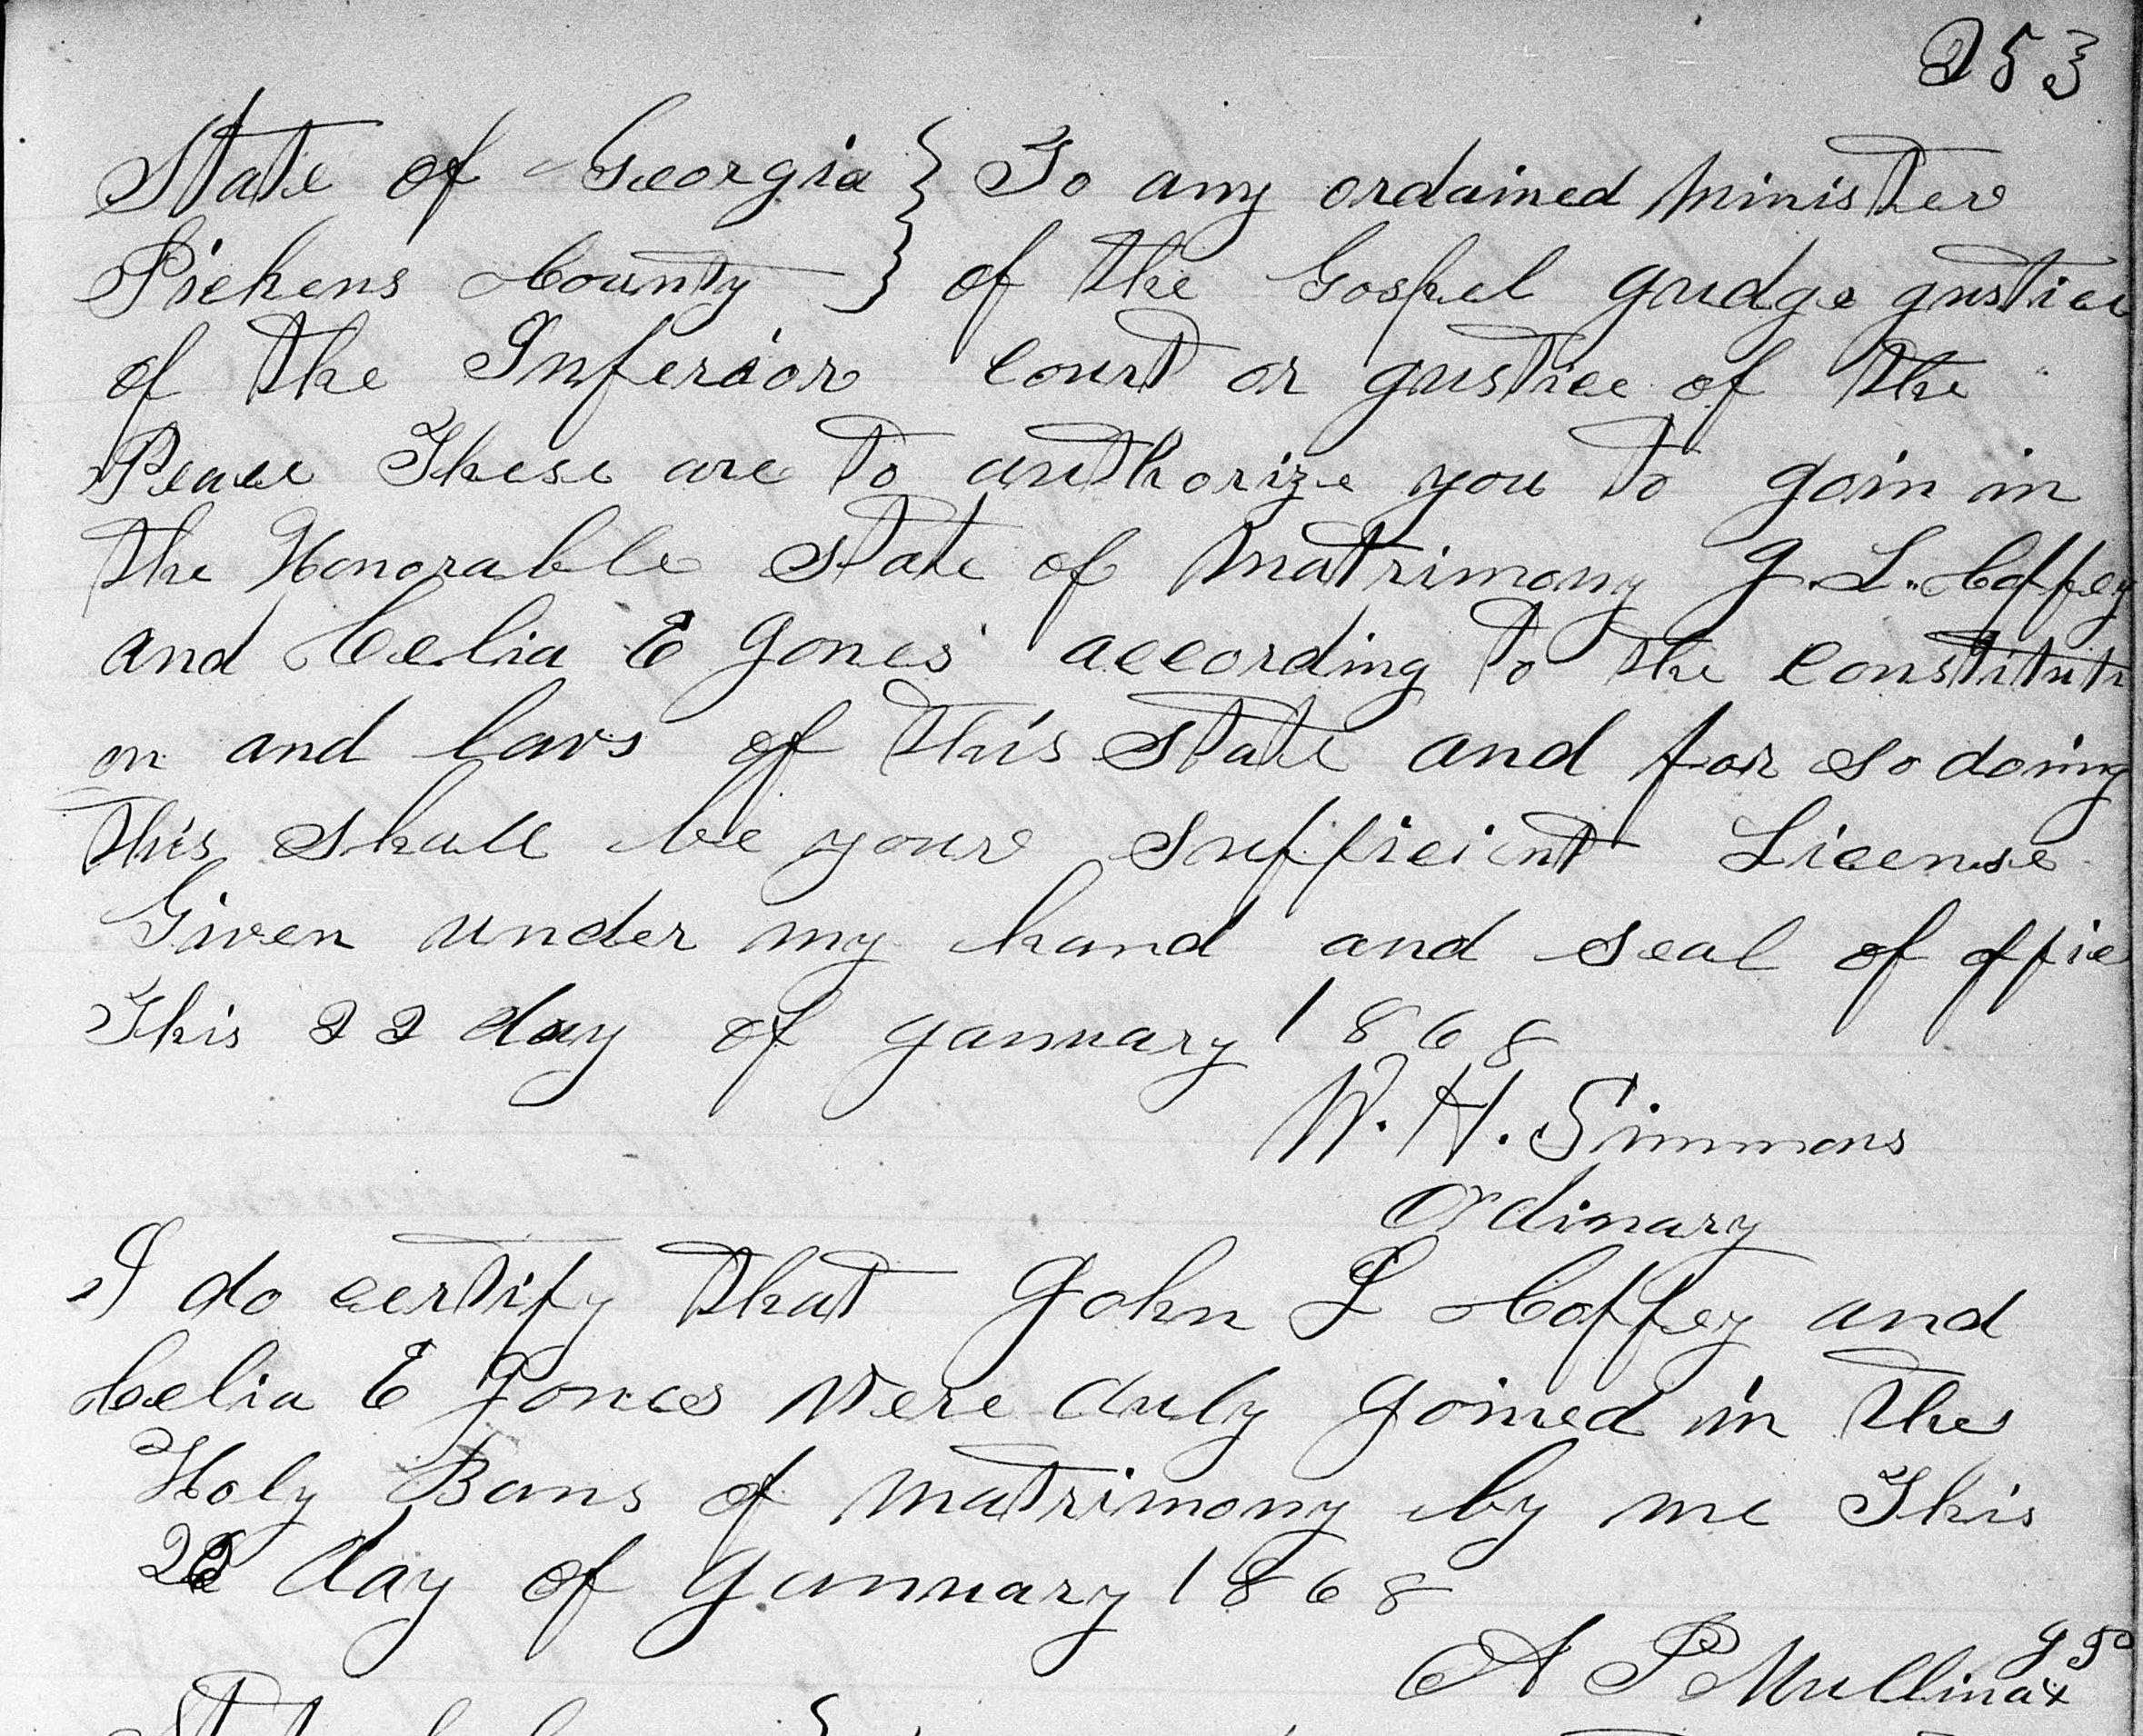 253
State of Georgia } To any ordained Minister
Pickens County } of the Gospel Judge Justice
of the Inferior Court or Justice of the
Peace These are to authorize you to Join in
the Honorable State of Matrimony J. L. Coffey
and Celia E Jones according to the Constituti
on and laws of this State and for so doing
this shall be your Sufficient License
Given under my hand and seal of offic
This 22 day of January 1868
W. H. Simmons
Ordinary
I do certify that John L Coffey and
Celia E Jones were duly Joined in the
Holy Bans of Matrimony by me This
22 day of January 1868
A P Mullinax JP